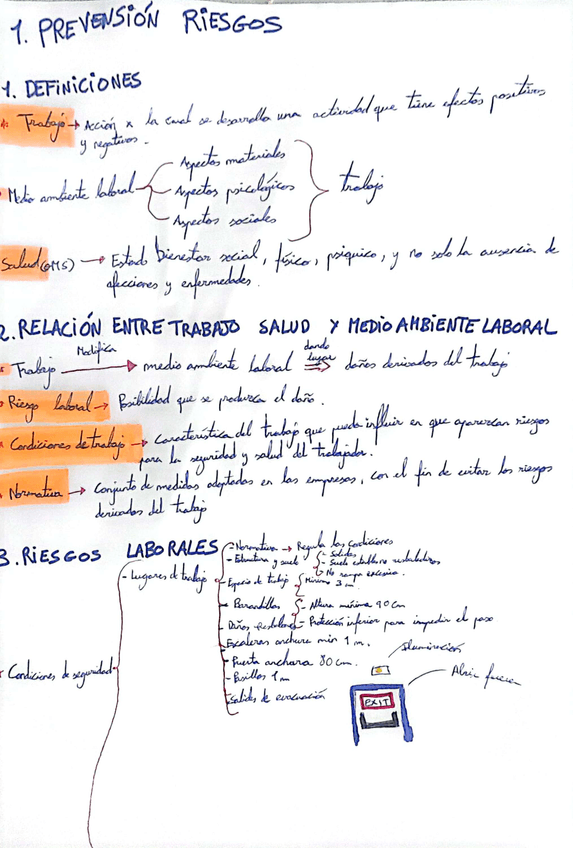 1. PREVENSIÓN RIESGOS
1. DEFINICIONES
Trabajo → Acción x la cual se desarrolla una actividad que tiene efectos positivos
y negativos.
Medio ambiente laboral
Aspectos materiales
Aspectos psicológicos
Aspectos sociales
trabajo
Salud (OMS) → Estado bienestar social, físico, psíquico, y no solo la ausencia de
afecciones y enfermedades.
2. RELACIÓN ENTRE TRABAJO SALUD Y MEDIO AMBIENTE LABORAL
Trabajo Modifica → medio ambiente laboral dando lugar ⇒ daños derivados del trabajo
Riesgo laboral → Posibilidad que se produzca el daño.
Condiciones de trabajo → Característica del trabajo que pueda influir en que aparezcan riesgos
para la seguridad y salud del trabajador.
Normativa → Conjunto de medidas adoptadas en las empresas, con el fin de evitar los riesgos
derivados del trabajo
3. RIESGOS LABORALES
Condiciones de seguridad
- Lugares de trabajo
- Normativa → Regula las condiciones
- Estructura y suelo
- Solidas
- Suelo estable no resbaladizos
- No rampa excesiva.
- Espacio de trabajo
Minimo 3 m
- Barandillas
- Altura mínima 90 cm
- Protección inferior para impedir el paso
Escaleras anchura min 1 m.
- Puerta anchura 80 cm.
- Pasillos 1 m
Salidas de evacuación
Iluminación
EXIT
Abrir fuera